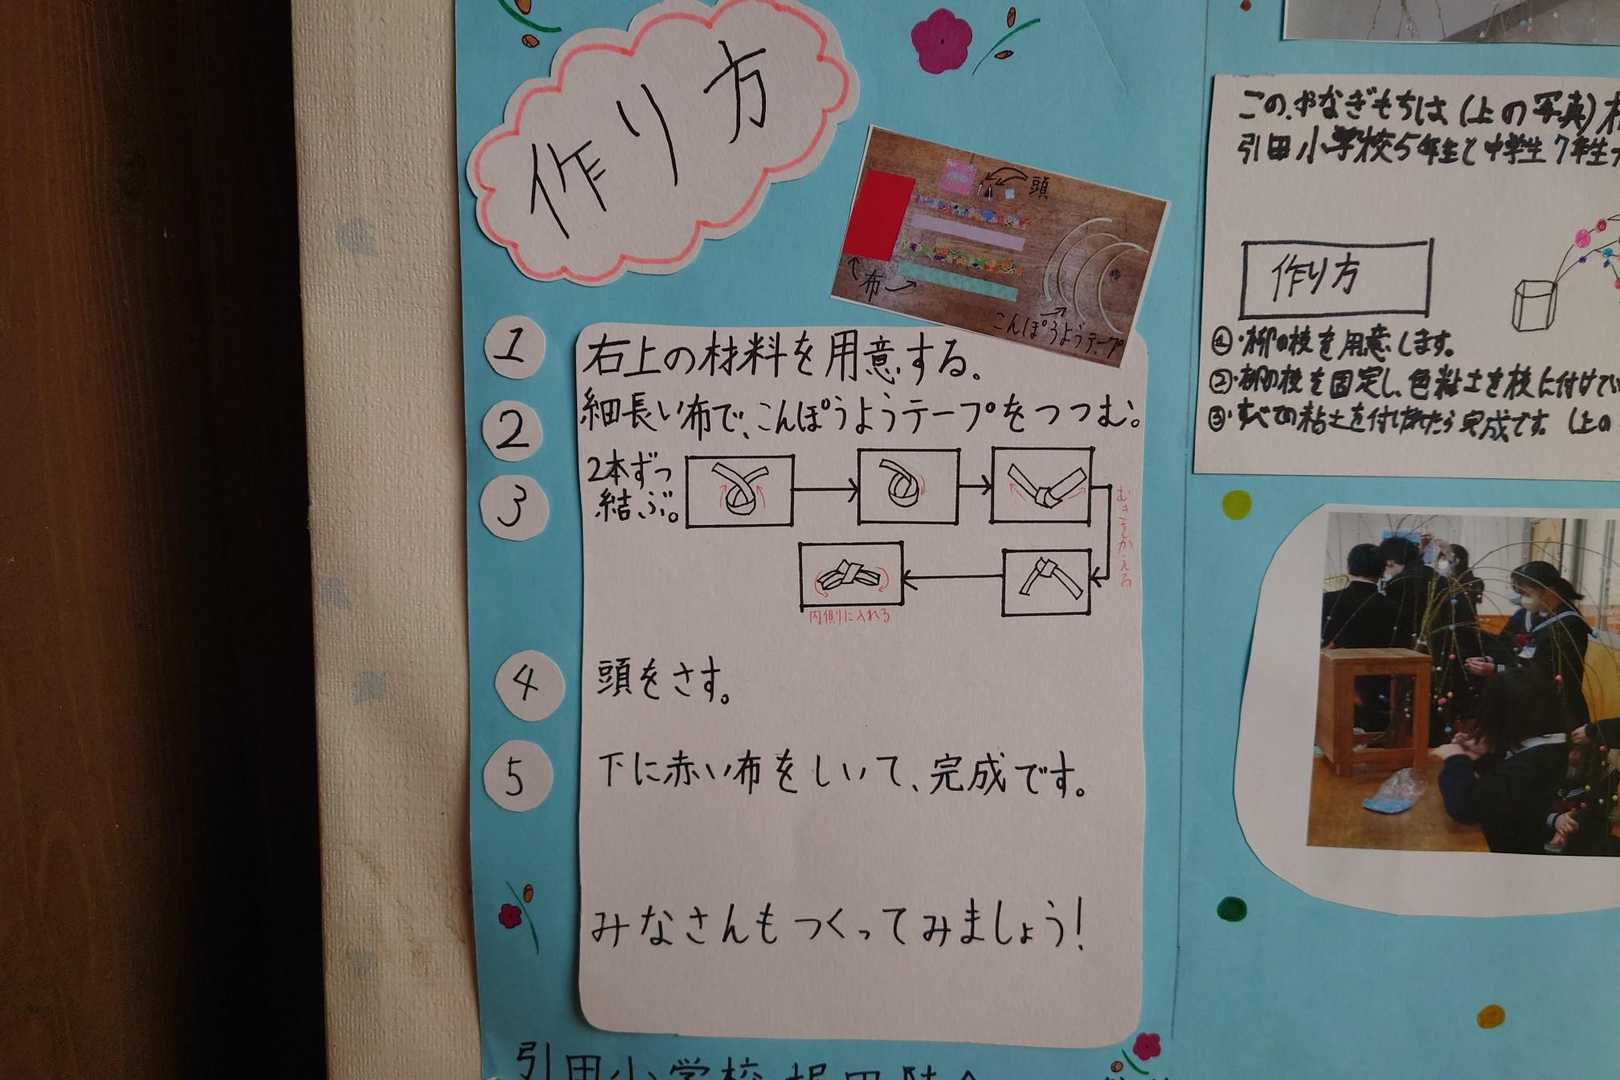 作り方
頭
布
こんぽうようテープ
1 右上の材料を用意する。
2 細長い布で、こんぽうようテープをつつむ。
3 2本ずつ
結ぶ。
むきをかえる
内側に入れる
4 頭をさす。
5 下に赤い布をしいて、完成です。
みなさんもつくってみましょう!
引田小学校
このやなぎもちは(上の写真)
引田小学校5年生と中学生7年生
作り方
①・柳の枝を用意します。
②・柳の枝を固定し、色粘土を枝に付けて
③・すべての粘土を付けれたら完成です。(上の